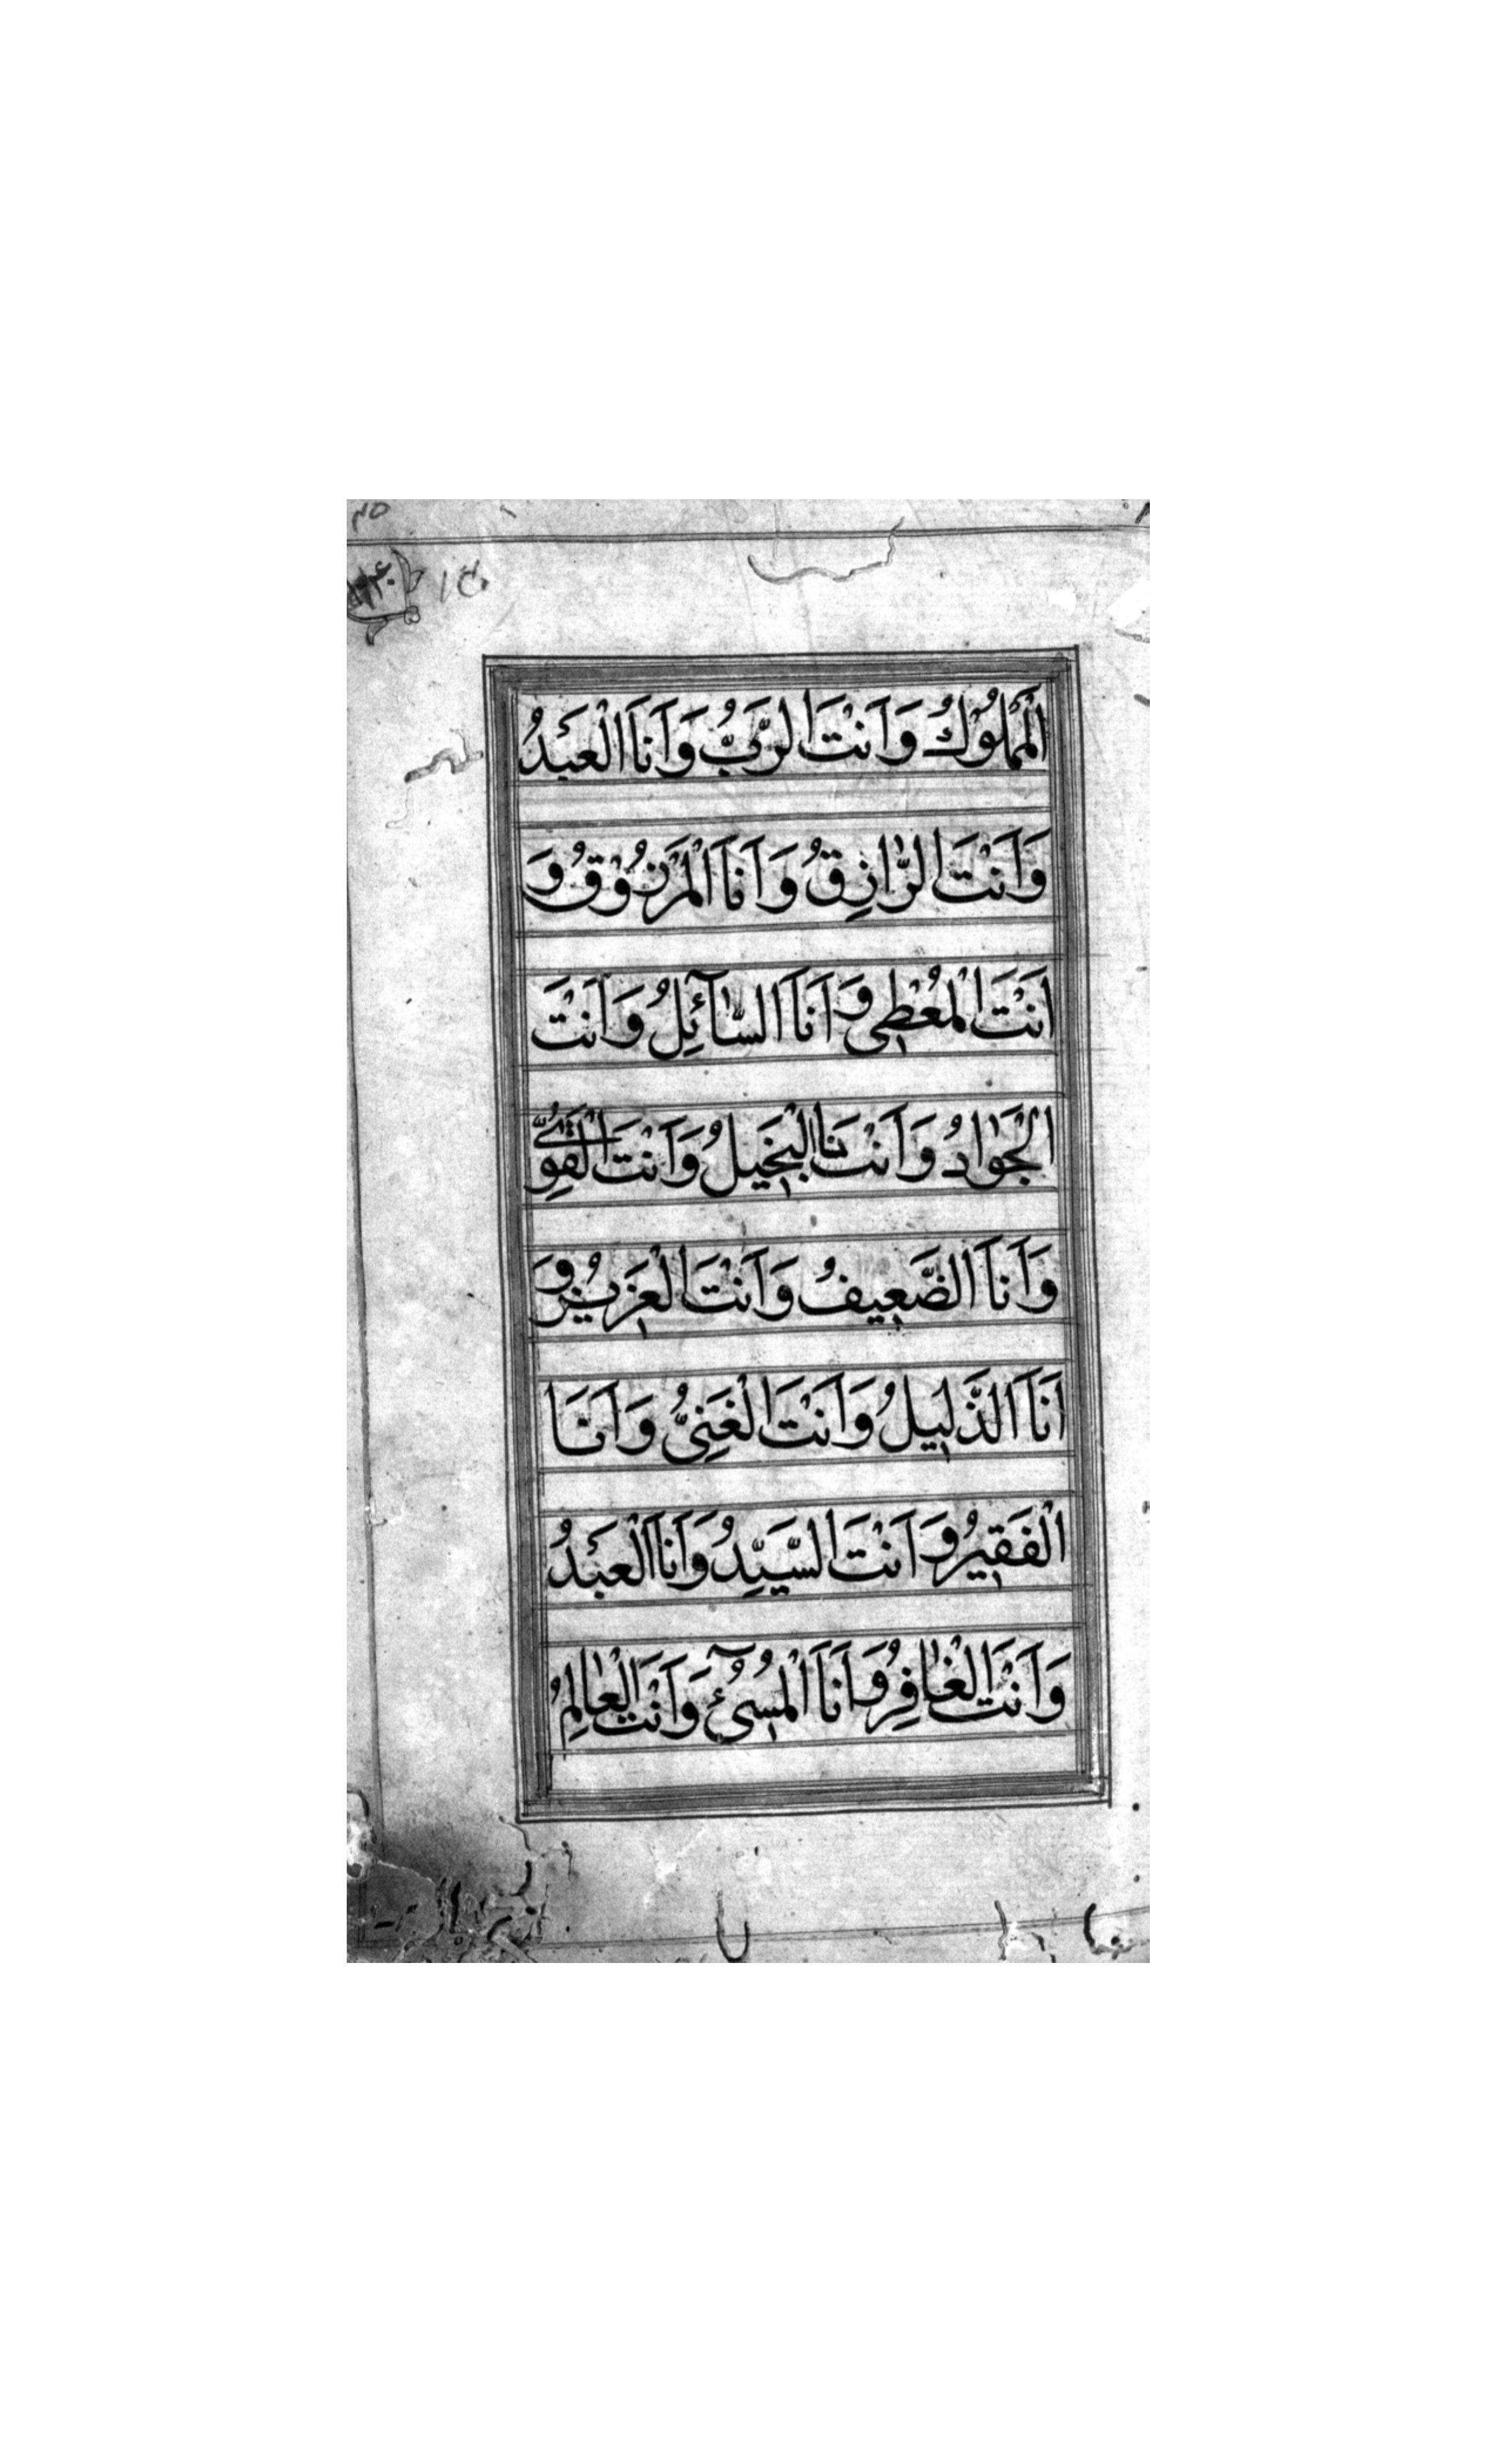 ١٥
الْمَمْلُوْكُ وَاَنْتَ الرَّبُّ وَاَنَا الْعَبْدُ
وَاَنْتَ الرَّازِقُ وَاَنَا الْمَرْزُوْقُ وَ
اَنْتَ الْمُعْطِى وَاَنَا السَّآئِلُ وَاَنْتَ
الْجَوَادُ وَاَنْتَنَا الْبَخِيلُ وَاَنْتَ الْقَوِىُّ
وَاَنَا الضَّعِيفُ وَاَنْتَ الْعَزِيزُ وَ
اَنَا الذَّلِيلُ وَاَنْتَ الْغَنِىُّ وَاَنَا
الْفَقِيرُ وَاَنْتَ السَّيِّدُ وَاَنَا الْعَبْدُ
وَاَنْتَ الْغَافِرُ وَاَنَا الْمُسِىْٓءُ وَاَنْتَ الْعَالِمُ